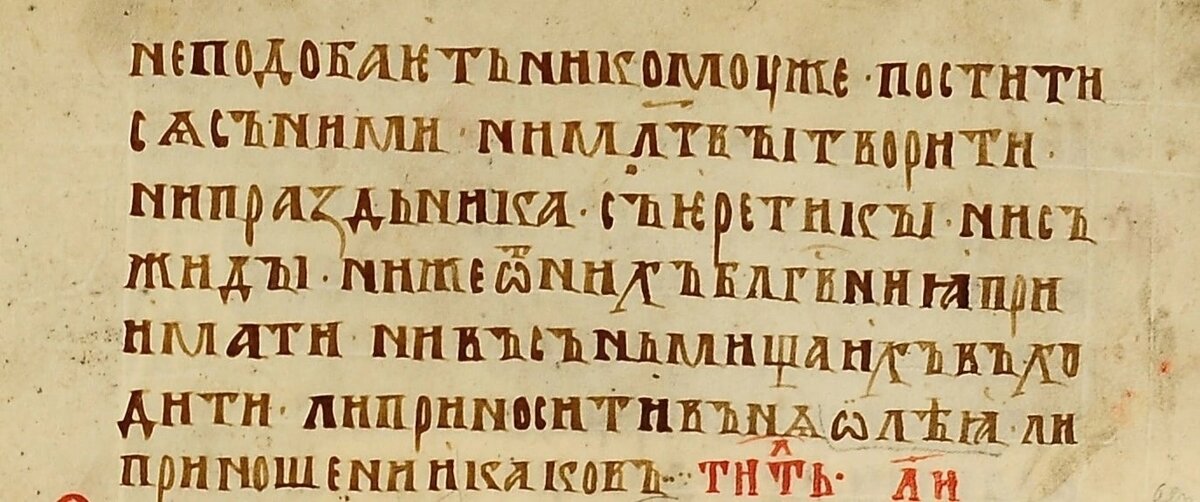 неподобаѥтьникомоуже · поститі
сѧсъними · нимл҃твꙑтворити ·
нипраздьника · съѥретикꙑ · нисъ
жидꙑ · нижеѿнихъблг҃вниꙗпри
имати · нивъсъньмищаихъвъхо
дити · липриноситивънѧѡлѣꙗ · ли
приношенииикаковъ · тит҃лъ · л҃и